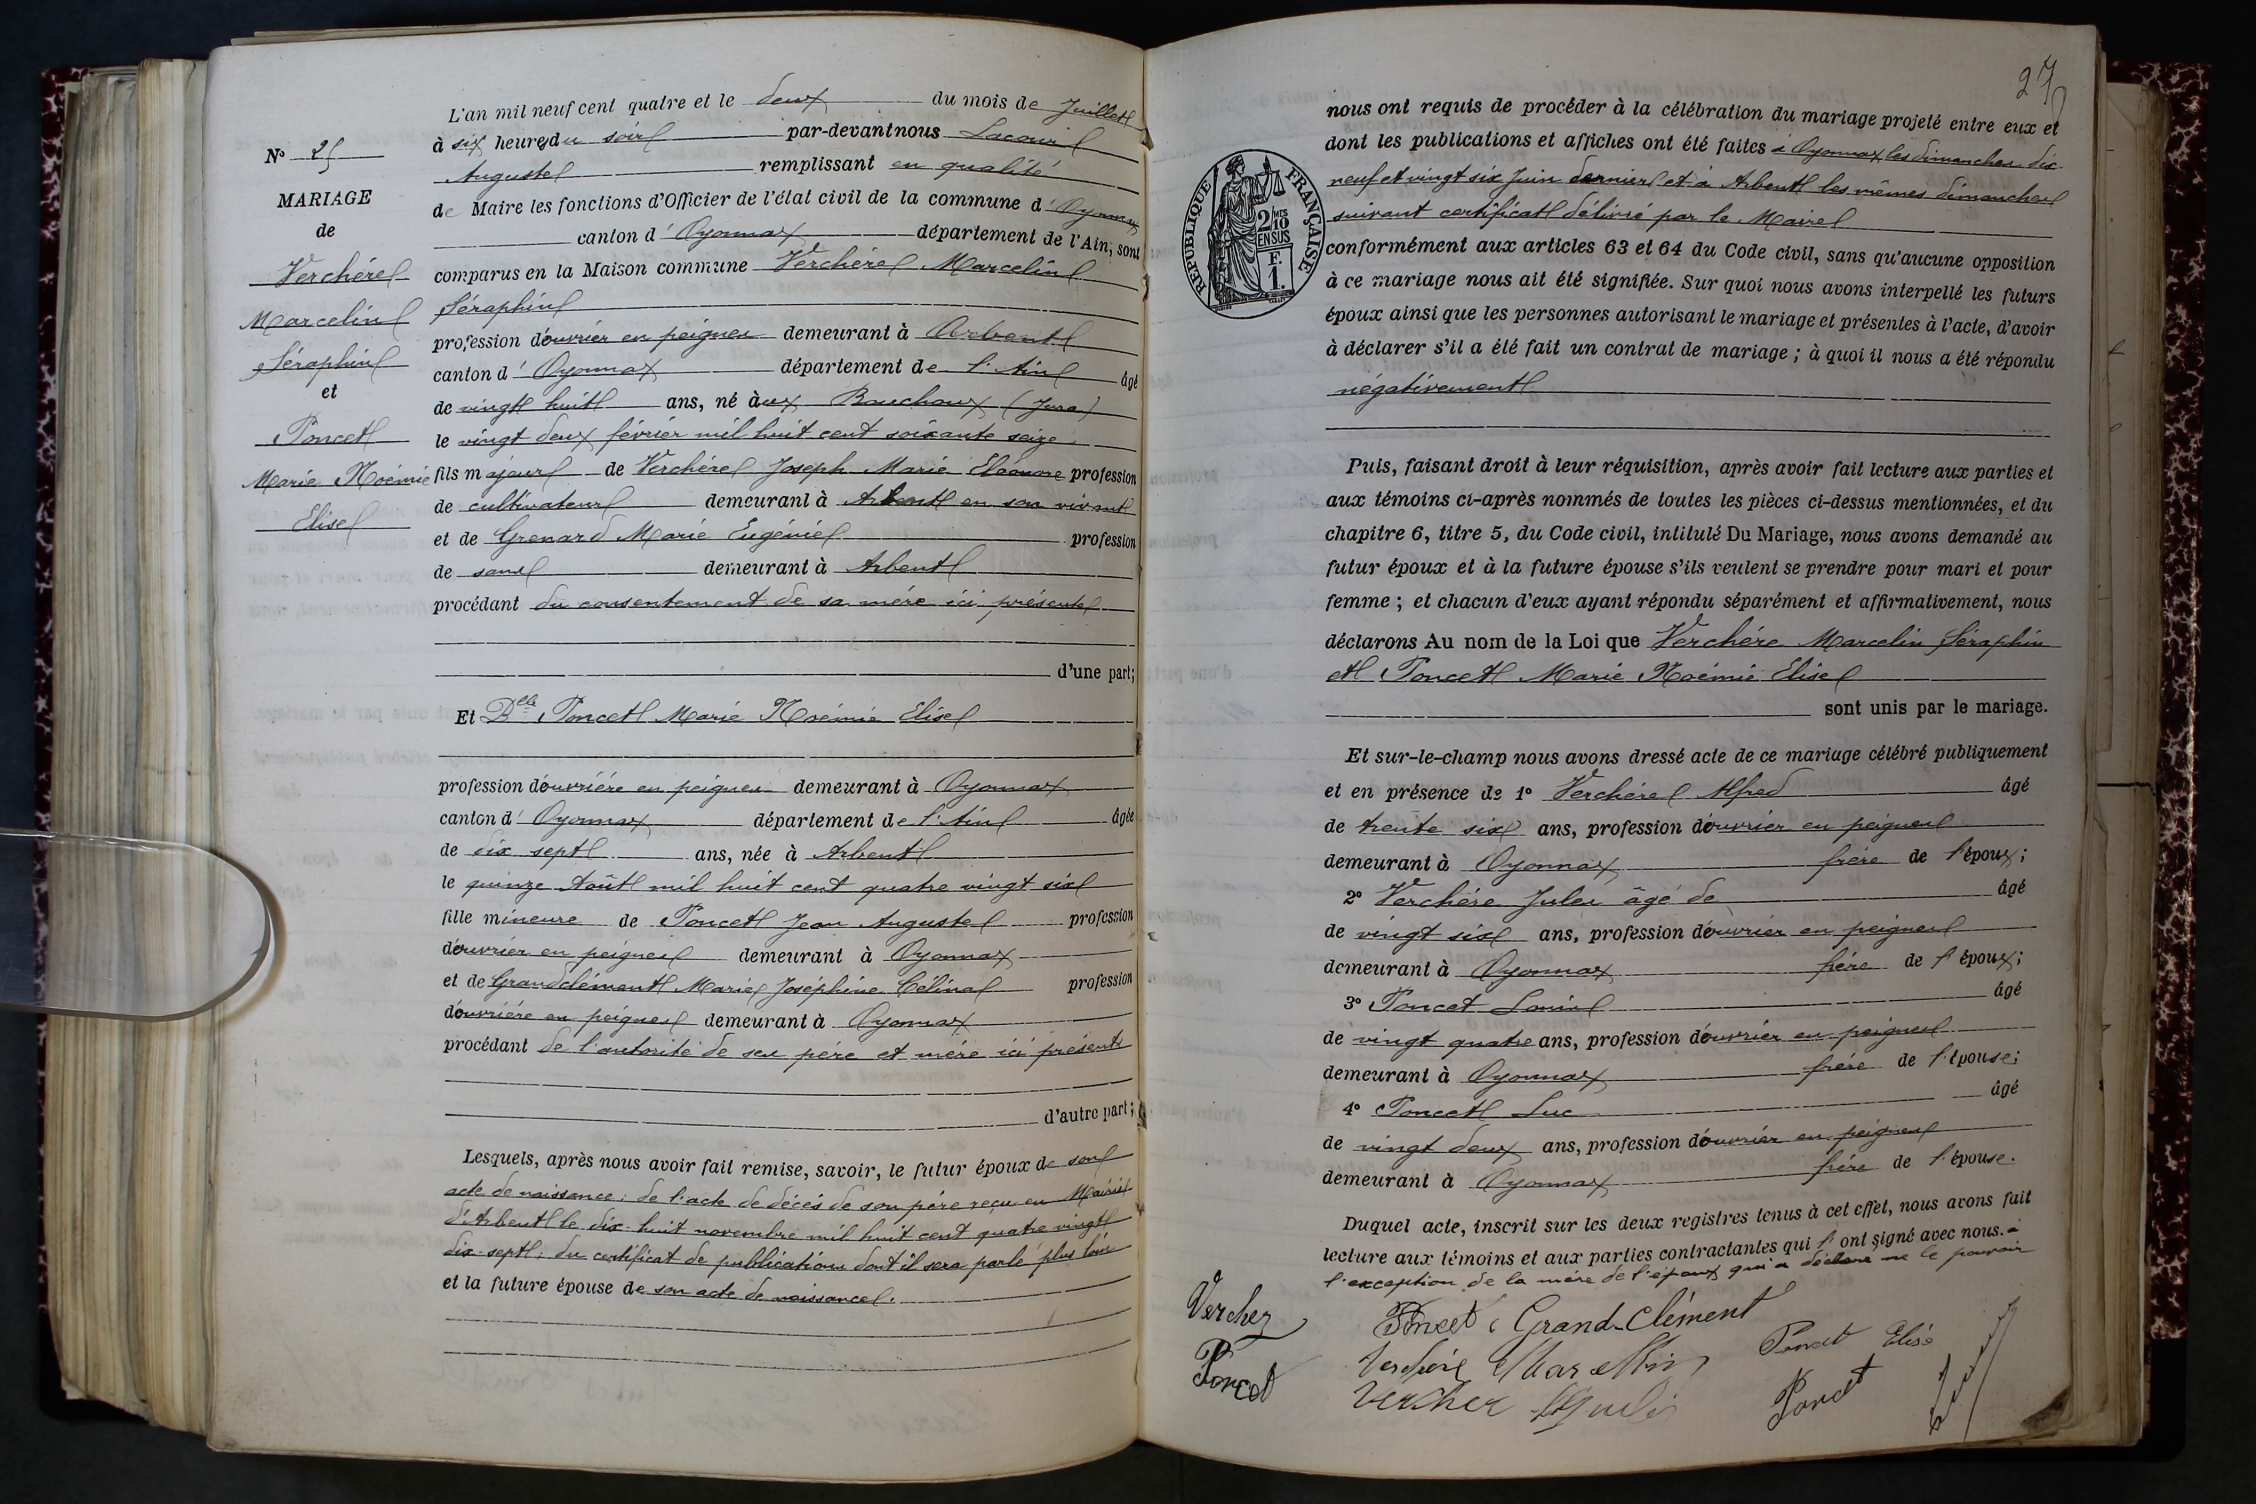 L'an mil neuf cent quatre et le deux du mois de Juillet
à six heures du soir par-devant nous Lacour
Auguste remplissant en qualité
de Maire les fonctions d'Officier de l'état civil de la commune d'Oyonnax
canton d'Oyonnax département de l'Ain, sont
comparus en la Maison commune Verchère Marcelin
Séraphin
profession d'ouvrier en peignes demeurant à Arbent
canton d'Oyonnax département de l'Ain âgé
de vingt huit ans, né aux Bouchoux (Jura)
le vingt deux février mil huit cent soixante seize
fils majeur de Verchère Joseph Marie Eléonore profession
de cultivateur demeurant à Arbent en son vivant
et de Grenard Marie Eugénie profession
de sans demeurant à Arbent
procédant du consentement de sa mère ici présente
d'une part;
Et Dlle Poncet Marie Noémie Elise
profession d'ouvrière en peignes demeurant à Oyonnax
canton d'Oyonnax département de l'Ain âgée
de dix sept ans, née à Arbent
le quinze Août mil huit cent quatre vingt six
fille mineure de Poncet Jean Auguste profession
d'ouvrier en peignes demeurant à Oyonnax
et de Grandclément Marie Joséphine Célina profession
d'ouvrière en peignes demeurant à Oyonnax
procédant de l'autorité de ses père et mère ici présents
d'autre part;
Lesquels, après nous avoir fait remise, savoir, le futur époux de son
acte de naissance; de l'acte de décès de son père reçu en Mairie
d'Arbent le dix-huit novembre mil huit cent quatre vingt
dix-sept; du certificat de publications dont il sera parlé plus loin
et la future épouse de son acte de naissance.
N° 25
MARIAGE
de
Verchère
Marcelin
Séraphin
et
Poncet
Marie Noémie
Elise
27
nous ont requis de procéder à la célébration du mariage projeté entre eux et
dont les publications et affiches ont été faites à Oyonnax les dimanches dix
neuf et vingt six Juin dernier et à Arbent les mêmes dimanches
suivant certificat délivré par le Maire
conformément aux articles 63 et 64 du Code civil, sans qu'aucune opposition
à ce mariage nous ait été signifiée. Sur quoi nous avons interpellé les futurs
époux ainsi que les personnes autorisant le mariage et présentes à l'acte, d'avoir
à déclarer s'il a été fait un contrat de mariage; à quoi il nous a été répondu
négativement
Puis, faisant droit à leur réquisition, après avoir fait lecture aux parties et
aux témoins ci-après nommés de toutes les pièces ci-dessus mentionnées, et du
chapitre 6, titre 5, du Code civil, intitulé Du Mariage, nous avons demandé au
futur époux et à la future épouse s'ils veulent se prendre pour mari et pour
femme; et chacun d'eux ayant répondu séparément et affirmativement, nous
déclarons Au nom de la Loi que Verchère Marcelin Séraphin
et Poncet Marie Noémie Elise
sont unis par le mariage.
Et sur-le-champ nous avons dressé acte de ce mariage célébré publiquement
et en présence de 1° Verchère Alfred âgé
de trente six ans, profession d'ouvrier en peignes
demeurant à Oyonnax frère de l'époux;
2° Verchère Jules âgé de âgé
de vingt six ans, profession d'ouvrier en peignes
demeurant à Oyonnax frère de l'époux;
3° Poncet Louis âgé
de vingt quatre ans, profession d'ouvrier en peignes
demeurant à Oyonnax frère de l'épouse;
4° Poncet Luc âgé
de vingt deux ans, profession d'ouvrier en peignes
demeurant à Oyonnax frère de l'épouse.
Duquel acte, inscrit sur les deux registres tenus à cet effet, nous avons fait
lecture aux témoins et aux parties contractantes qui l'ont signé avec nous. à
l'exception de la mère de l'époux qui a déclaré ne le pouvoir
Verchez
Poncet Grand-Clément
Poncet Elise
Poncet
Verchère Marcellin
Poncet
Vercher Jules
RÉPUBLIQUE FRANÇAISE
2/10
EN SUS
F.
1.